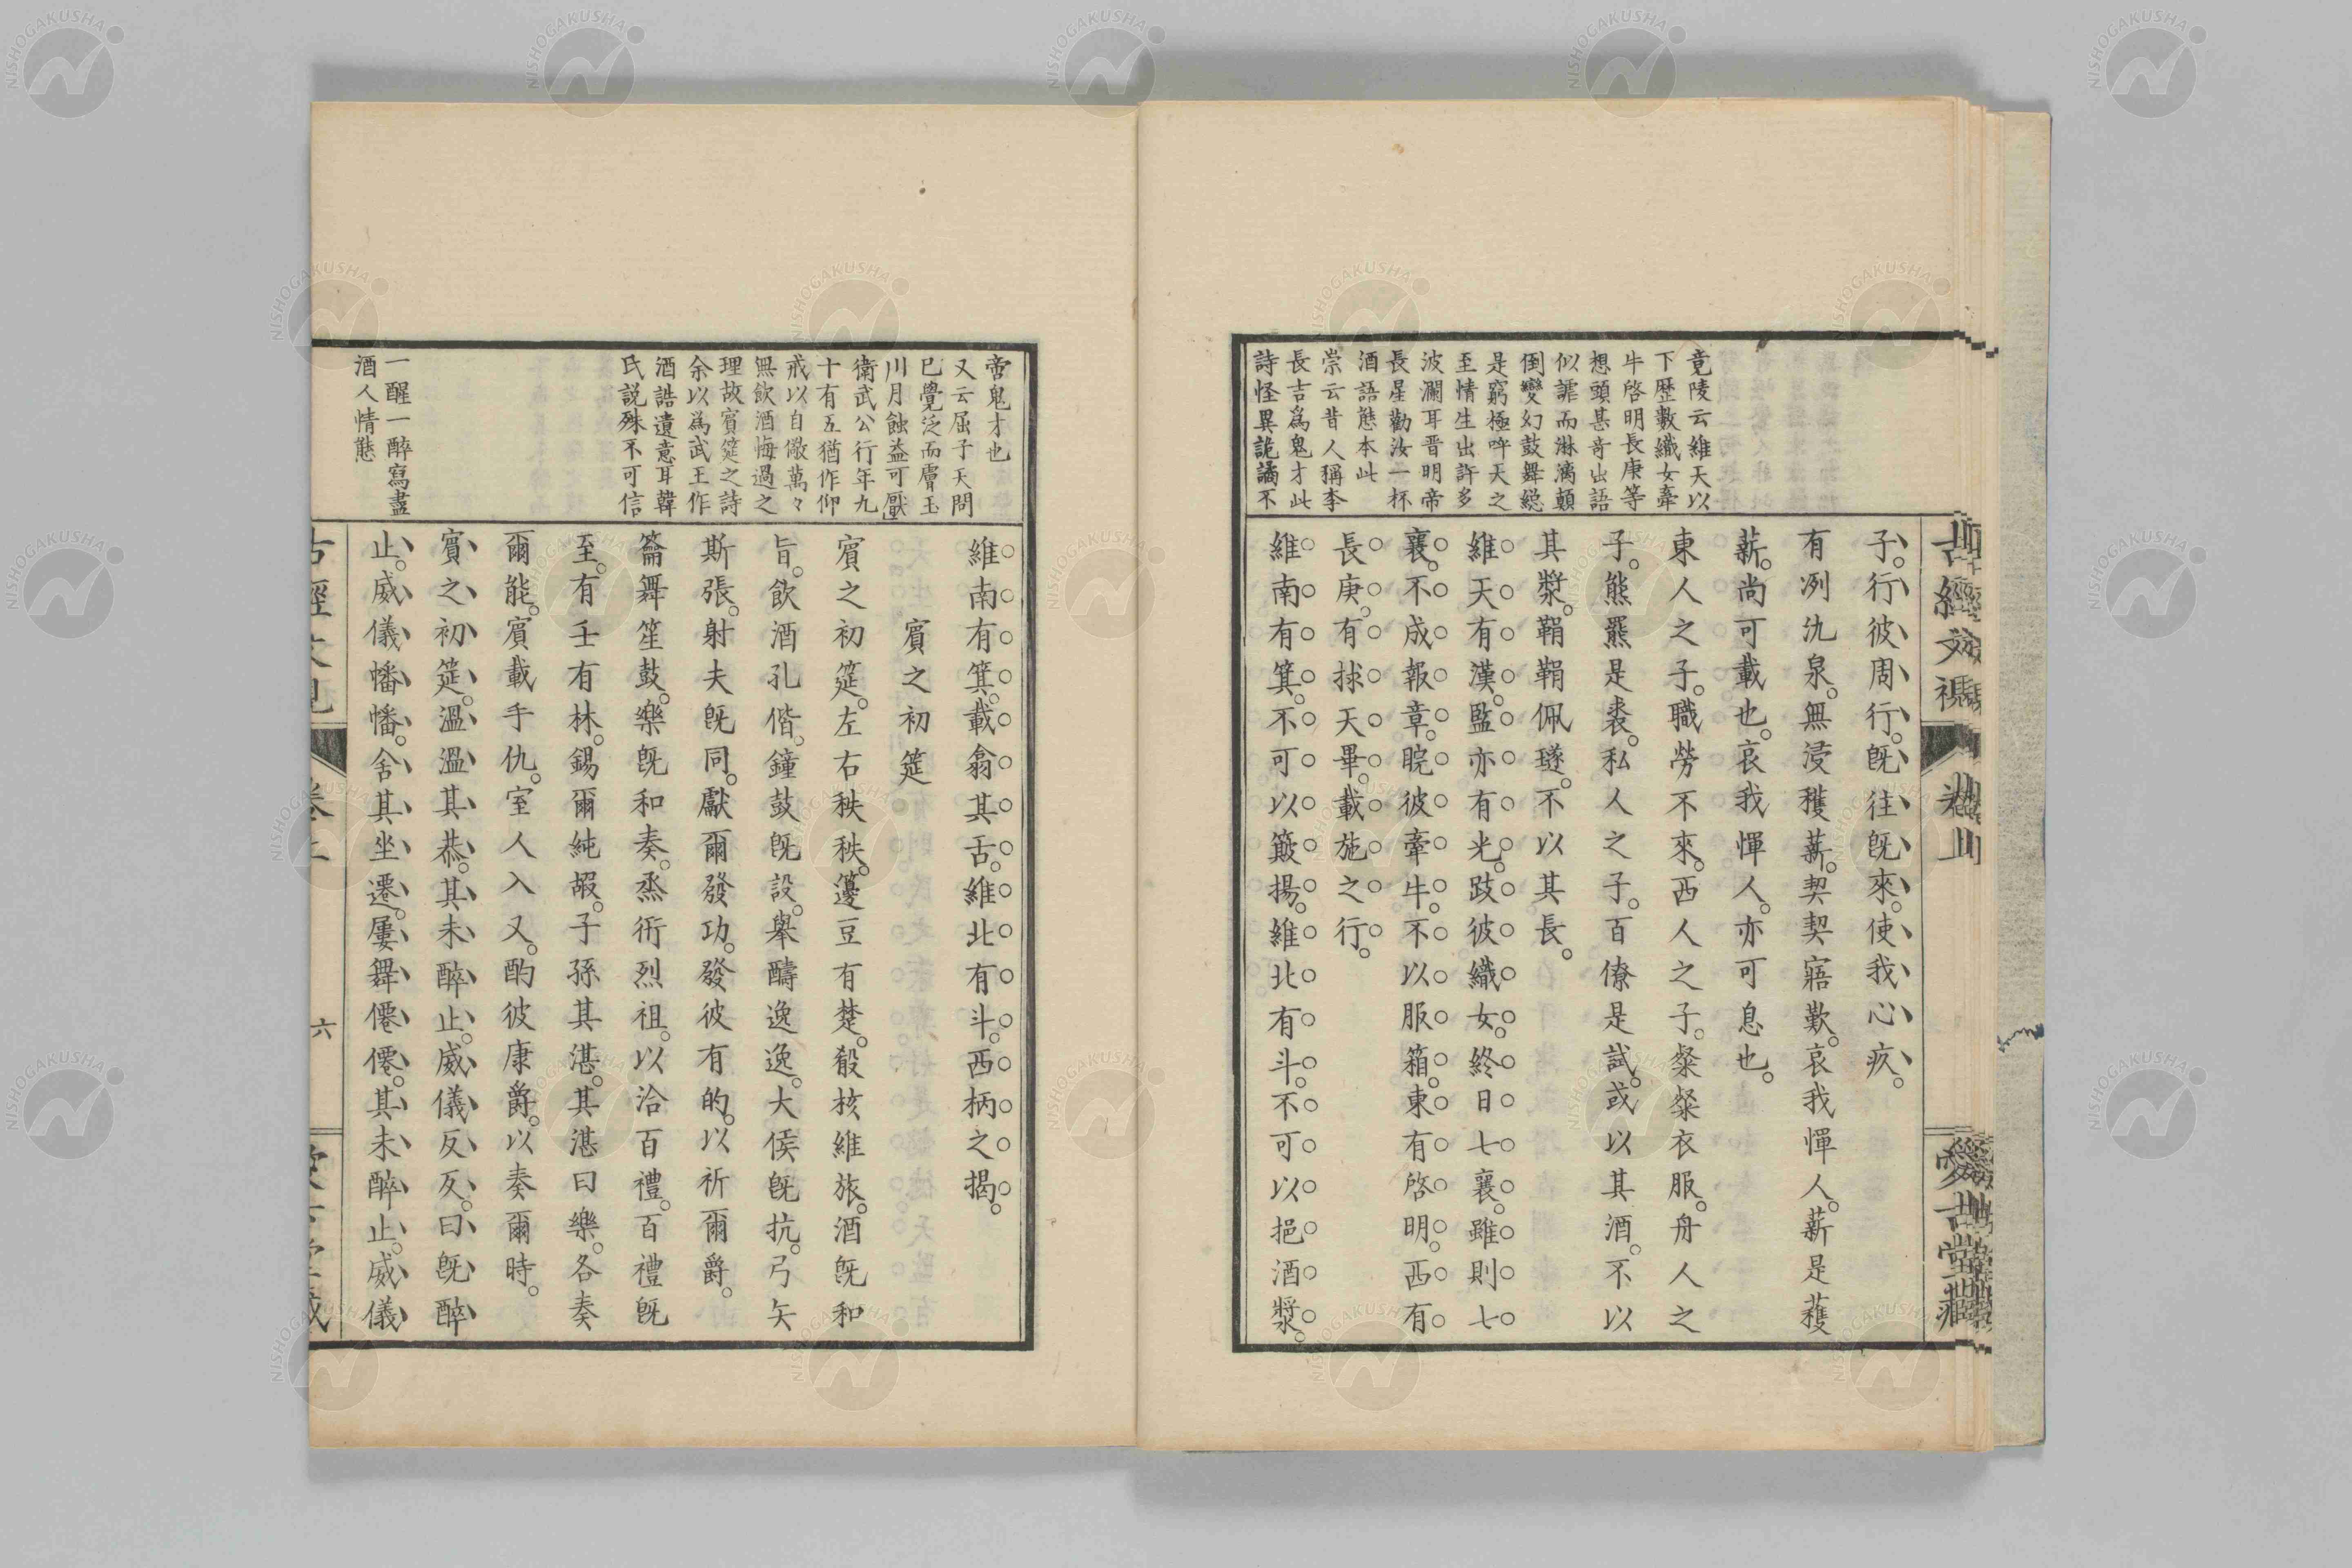 子。行彼周行。既往既來。使我心疚。
有冽氿泉。無浸穫薪。契契寤歎。哀我憚人。薪是穫
薪。尚可載也。哀我憚人。亦可息也。
東人之子。職勞不來。西人之子。粲粲衣服。舟人之
子。熊羆是裘。私人之子。百僚是試。或以其酒。不以
其漿。鞙鞙佩璲。不以其長。
維天有漢。監亦有光。跂彼織女。終日七襄。雖則七
襄。不成報章。睆彼牽牛。不以服箱。東有啓明。西有
長庚。有捄天畢。載施之行。
維南有箕。不可以簸揚。維北有斗。不可以挹酒漿。
竟陵云維天以
下歷數織女牽
牛啓明長庚等
想頭甚奇出語
似謔而淋漓顛
倒變幻鼓舞總
是窮極呼天之
至情生出許多
波瀾耳晋明帝
長星勸汝一杯
酒語態本此
崇云昔人稱李
長吉爲鬼才此
詩怪異詭譎不
維南有箕。載翕其舌。維北有斗。西柄之揭。
賓之初筵
賓之初筵。左右秩秩。籩豆有楚。殽核維旅。酒既和
旨。飲酒孔偕。鐘鼓既設。舉醻逸逸。大侯既抗。弓矢
斯張。射夫既同。獻爾發功。發彼有的。以祈爾爵。
籥舞笙鼓。樂既和奏。烝衎烈祖。以洽百禮。百禮既
至。有壬有林。錫爾純嘏。子孫其湛。其湛曰樂。各奏
爾能。賓載手仇。室人入又。酌彼康爵。以奏爾時。
賓之初筵。溫溫其恭。其未醉止。威儀反反。曰既醉
止。威儀幡幡。舍其坐遷。屢舞僊僊。其未醉止。威儀
帝鬼才也
又云屈子天問
已覺泛而膚玉
川月蝕益可厭
衛武公行年九
十有五猶作仰
戒以自儆萬々
無飲酒悔過之
理故賓筵之詩
余以爲武王作
酒誥遺意耳韓
氏説殊不可信
一醒一醉寫盡
酒人情態
六